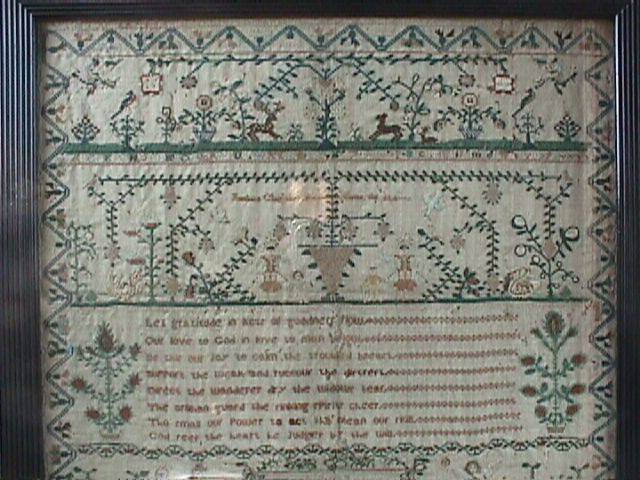 Let gratitude in acts of goodness flow
Our love to God in love to man below
Be this our joy to calm the troubled breast
Support the weak and succour the distrest
Direct the wanderer dry the widows tear
The orphan guard the sinking spirits cheer
Tho small our power to act tho mean our skill
God sees the heart he judges by the will